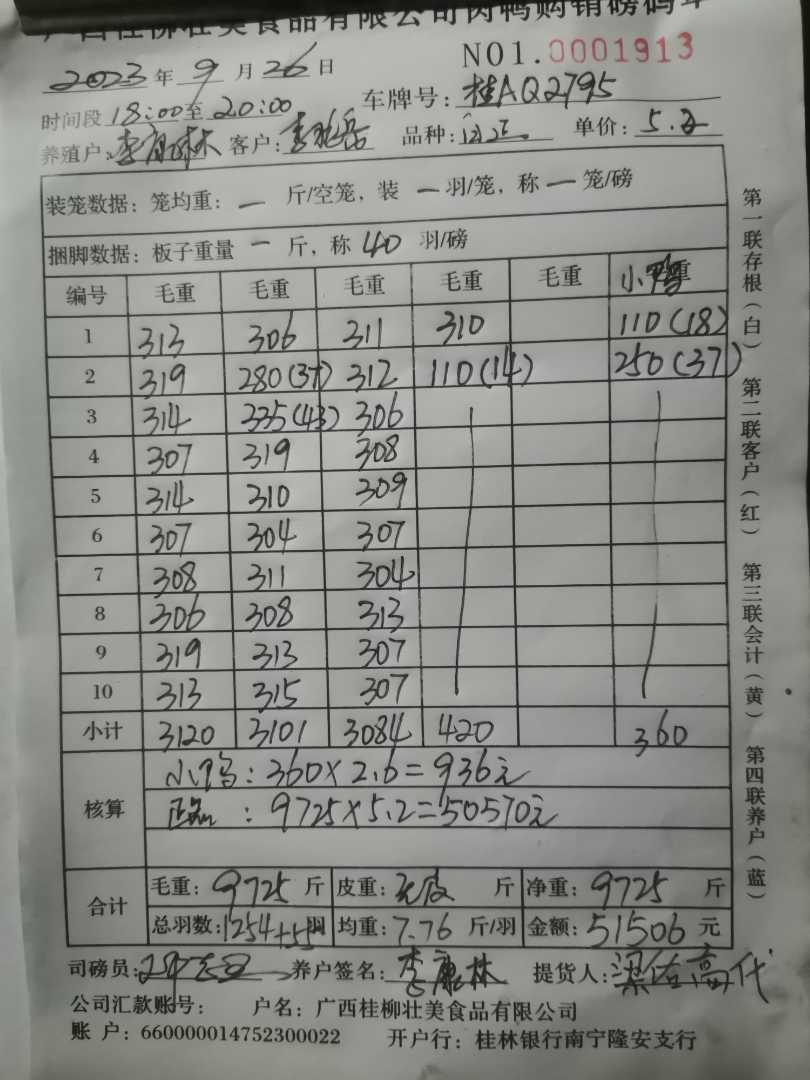 广西桂柳壮美食品有限公司肉鸭购销磅码单
NO1.0001913
2023年9月26日
时间段18:00至20:00 车牌号:桂AQ2795
养殖户:李康林 客户: 品种: 单价:5.2
装笼数据:笼均重:一斤/空笼,装一羽/笼,称一笼/磅
捆脚数据:板子重量一斤,称40羽/磅
编号 毛重 毛重 毛重 毛重 毛重 小鸭重
1 313 306 311 310 110(18)
2 319 280(37) 312 110(14) 250(37)
3 314 335(43) 306
4 307 319 308
5 314 310 309
6 307 304 307
7 308 311 304
8 306 308 313
9 319 313 307
10 313 315 307
小计 3120 3101 3084 420 360
核算 小鸭:360×2.6=936元
正品:9725×5.2=50570元
合计 毛重:9725斤 皮重:无皮斤 净重:9725斤
总羽数:1254+55羽 均重:7.76斤/羽 金额:51506元
司磅员: 养户签名:李康林 提货人:
公司汇款账号: 户名:广西桂柳壮美食品有限公司
账 户:660000014752300022 开户行:桂林银行南宁隆安支行
第一联存根(白) 第二联客户(红) 第三联会计(黄) 第四联养户(蓝)